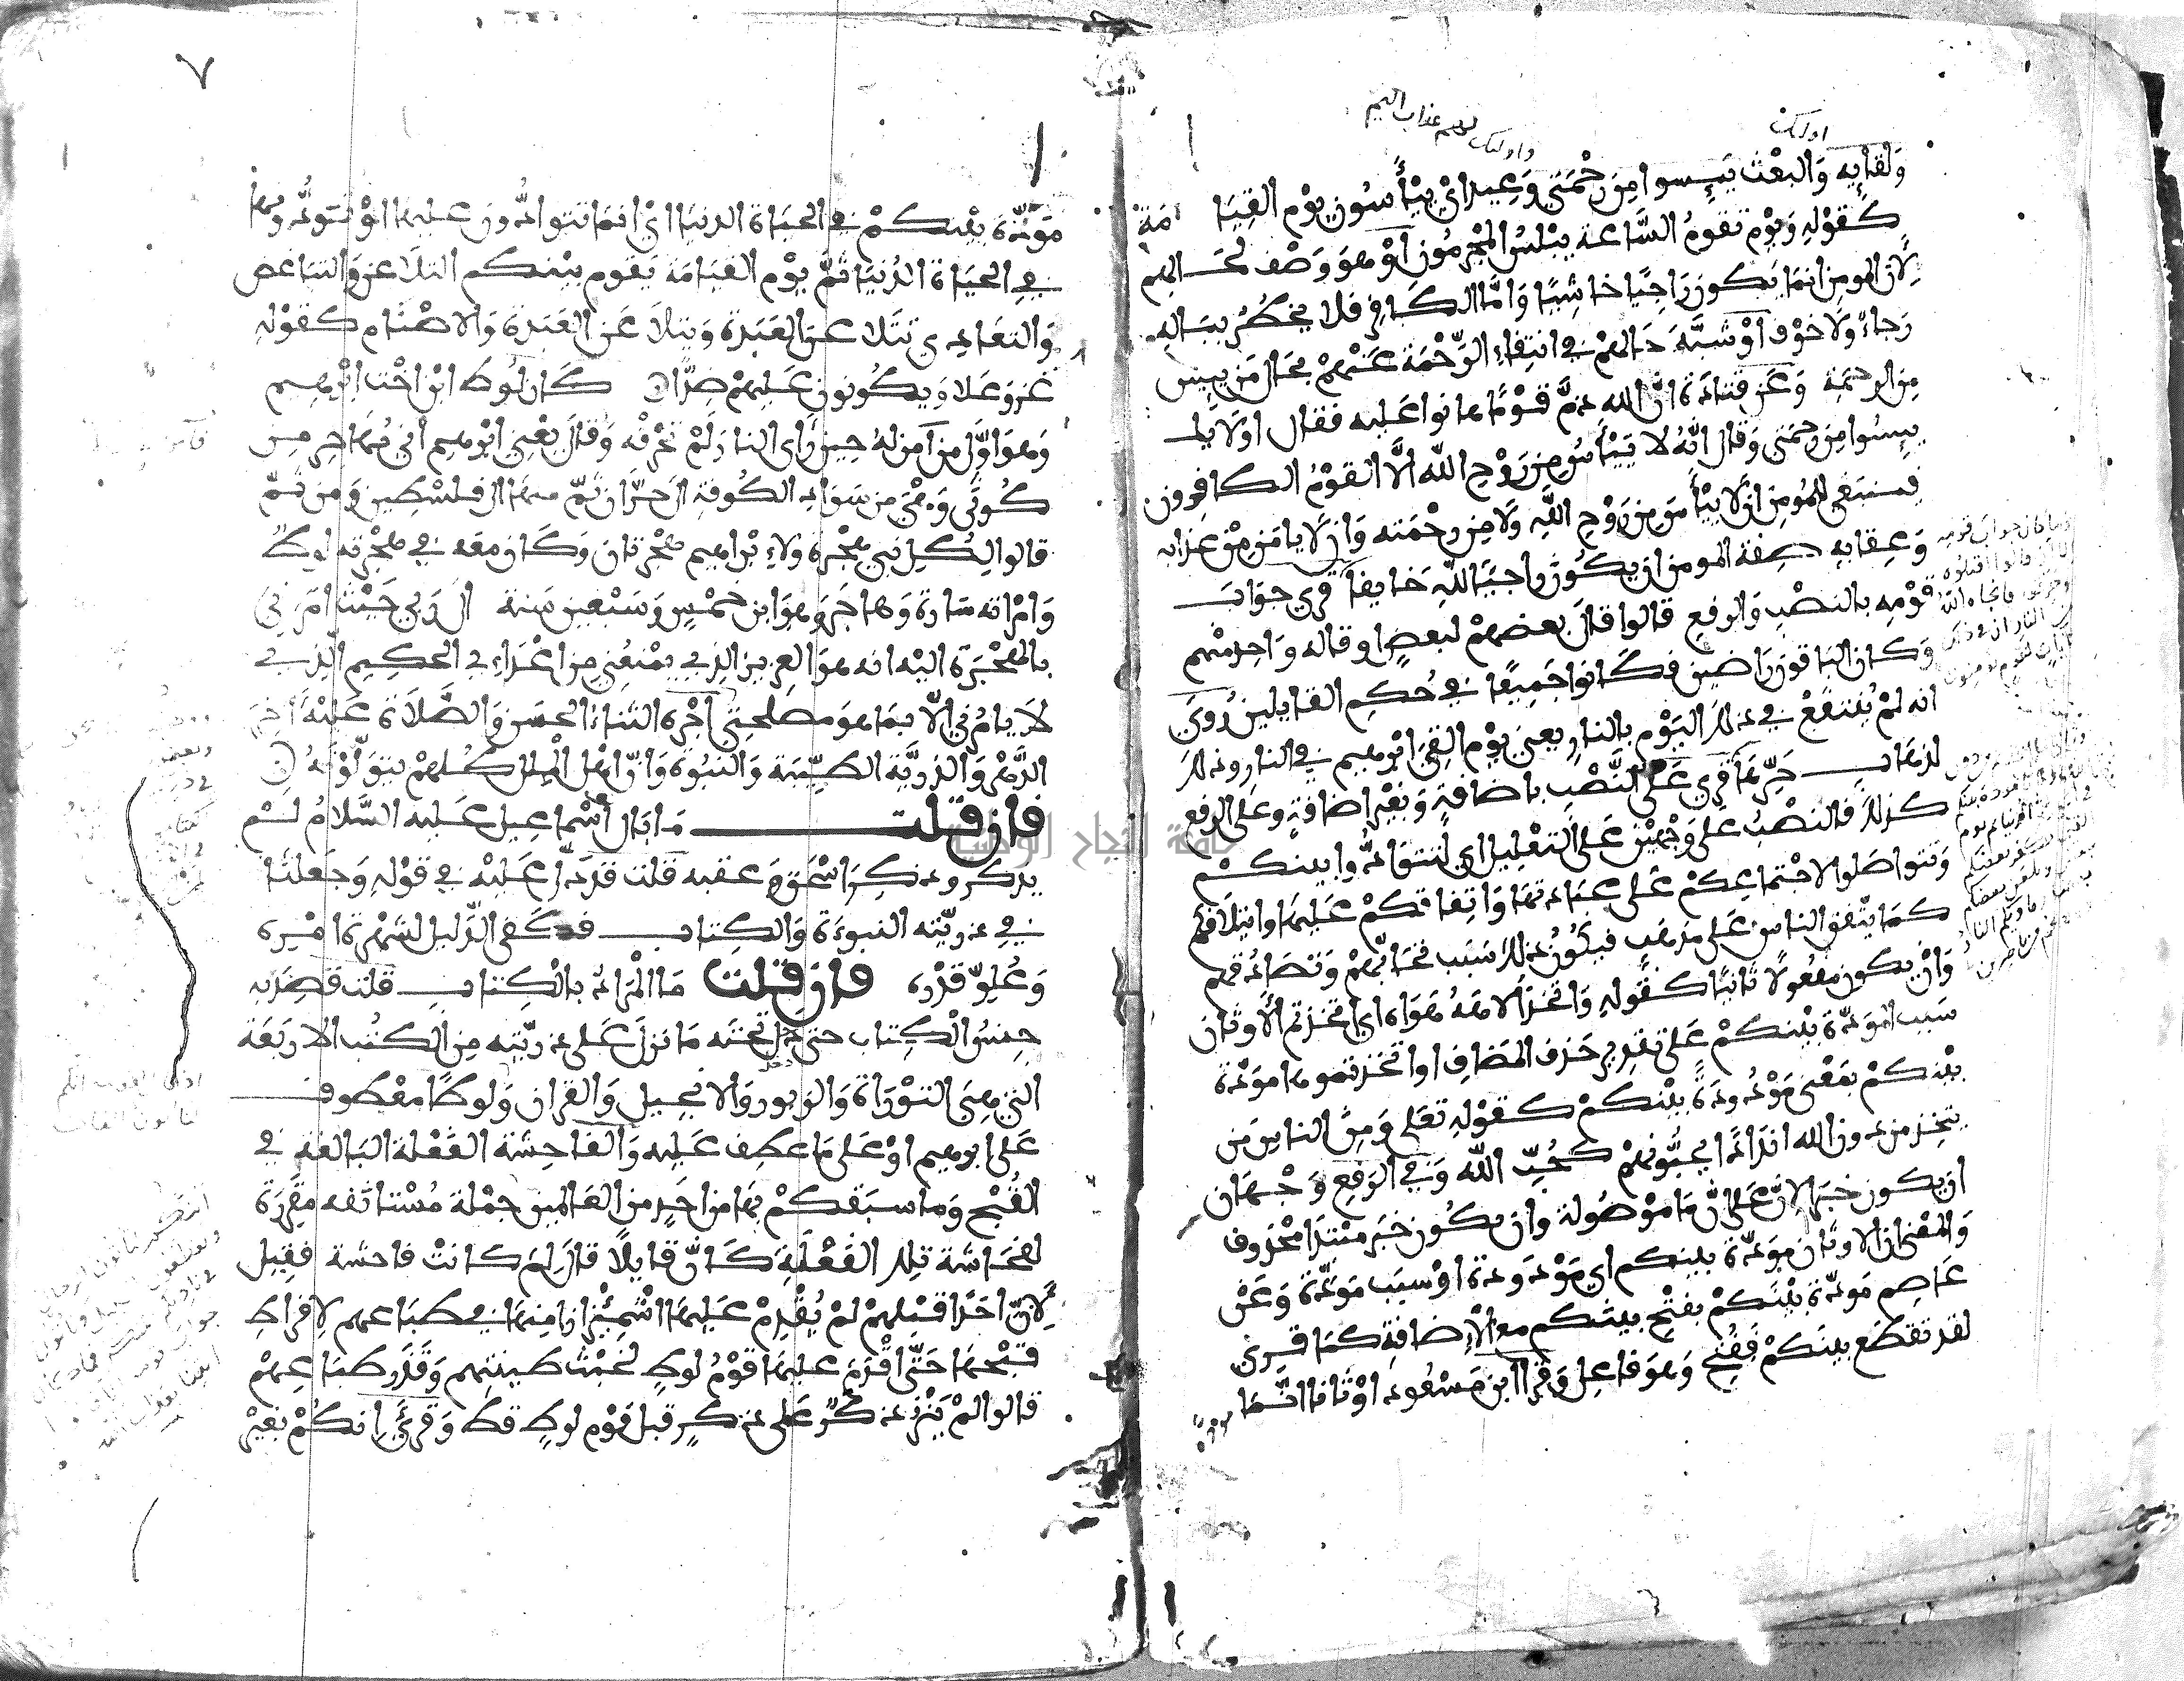 اولئك
واولئك لهم عذاب اليم
ولقايه والبعث ييسوا من رحمتي وعيد اي ييأسون يوم القيامة
كقوله ويوم تقوم الساعة يبلس المجرمون او هو وصف لحالهم
لان المومن انما يكون راجيا خاشيا واما الكافر فلا يخطر بباله
رجاء ولا خوف او شبه حالهم في انتفاء الرحمة عنهم بحال من ييس
من الرحمة وعن قتادة ان الله ذم قوما هانوا عليه فقال اولايك
ييسوا من رحمتي وقال انه لا ييأس من روح الله الا القوم الكافرون
فينبغي للمومن ان لا ييأس من روح الله ولا من رحمته وان لا يامن من عذابه
وعقابه صفة المومن ان يكون راجيا لله خايفا قري جواب
قومه بالنصب والرفع قالوا قال بعضهم لبعض او قاله واحد منهم
وكان الباقون راضين فكانوا جميعا في حكم القايلين روي
انه لم ينتفع في ذلك اليوم بالنار يعني يوم القي ابرهيم في النار وذلك
لذهاب حرها قري على النصب باضافة وبغير اضافة وعلى الرفع
كذلك فالنصب على وجهين على التعليل اي لتتوادوا بينكم
وتتواصلوا لاجتماعكم على عبادتها واتفاقكم عليها وايتلافكم
كما يتفق الناس على مذهب فيكون ذلك سبب تحابهم وتصادقهم
وان يكون مفعولا ثانيا كقوله واتخذ الاهه هواه اي اتخذتم الاوثان
سبب المودة بينكم على تقدير حذف المضاف او اتخذتموها مودة
بينكم بمعنى مودودة بينكم كقوله تعلى ومن الناس من
يتخذ من دون الله اندادا يحبونهم كحب الله وفي الرفع وجهان
ان يكون خبرا لان على ان ما موصولة وان يكون خبر مبتدا محذوف
والمعنى ان الاوثان مودة بينكم اي مودودة او سبب مودة وعن
عاصم مودة بينكم بفتح بينكم مع الاضافة كما قري
لقد تقطع بينكم ففتح وهو فاعل وقرا ابن مسعود اوثانا انما
٧
مودة بينكم في الحياة الدنيا اي انما تتوادون عليها او تودونها
في الحياة الدنيا ثم يوم القيامة يقوم بينكم التلاعن والتباغض
والتعادي تتلاعن العبدة وتتلاعن العبدة والاصنام كقوله
عز وعلا ويكونون عليهم ضدا كان لوط ابن اخت ابرهيم
وهو اول من آمن له حين راى النار لم تحرقه وقال يعني ابرهيم اني مهاجر من
كوثى وهي من سواد الكوفة الى حران ثم منها الى فلسطين ومن ثم
قالوا لكل نبي هجرة ولابراهيم هجرتان وكان معه في هجرته لوط
وامراته سارة وهاجر وهو ابن خمس وسبعين سنة الى ربي حيث امرني
بالهجرة اليه انه هو العزيز الذي يمنعني من اعداءي الحكيم الذي
لا يامرني الا بما هو مصلحتي اجره الثناء الحسن والصلاة عليه اخر
الدهر والذرية الطيبة والنبوة وان اهل الملل كلهم يتولونه
فان قلت ما بال اسماعيل عليه السلام لم
يذكر وذكر اسحق وعقبه قلت قد دل عليه في قوله وجعلنا
في ذريته النبوءة والكتاب فكفى الدليل لشهرة امره
وعلو قدره فان قلت ما المراد بالكتاب قلت قصد به
جنس الكتاب حتى دخل تحته ما نزل على ذريته من الكتب الاربعة
التي هي التوراة والزبور والانجيل والقران ولوطا معطوف
على ابرهيم او على ما عطف عليه والفاحشة الفعلة البالغة في
القبح وما سبقكم بها من احد من العالمين جملة مستانفة مقررة
لفحاشة تلك الفعلة كان قايلا قال لم كانت فاحشة فقيل
لان احدا قبلهم لم يقدم عليها اشمئزازا منها في طباعهم لافراط
قبحها حتى اقدم عليها قوم لوط لخبث طينتهم وقذر طباعهم
قالوا لم ينز ذكر على ذكر قبل قوم لوط قط وقرئ انكم بغير